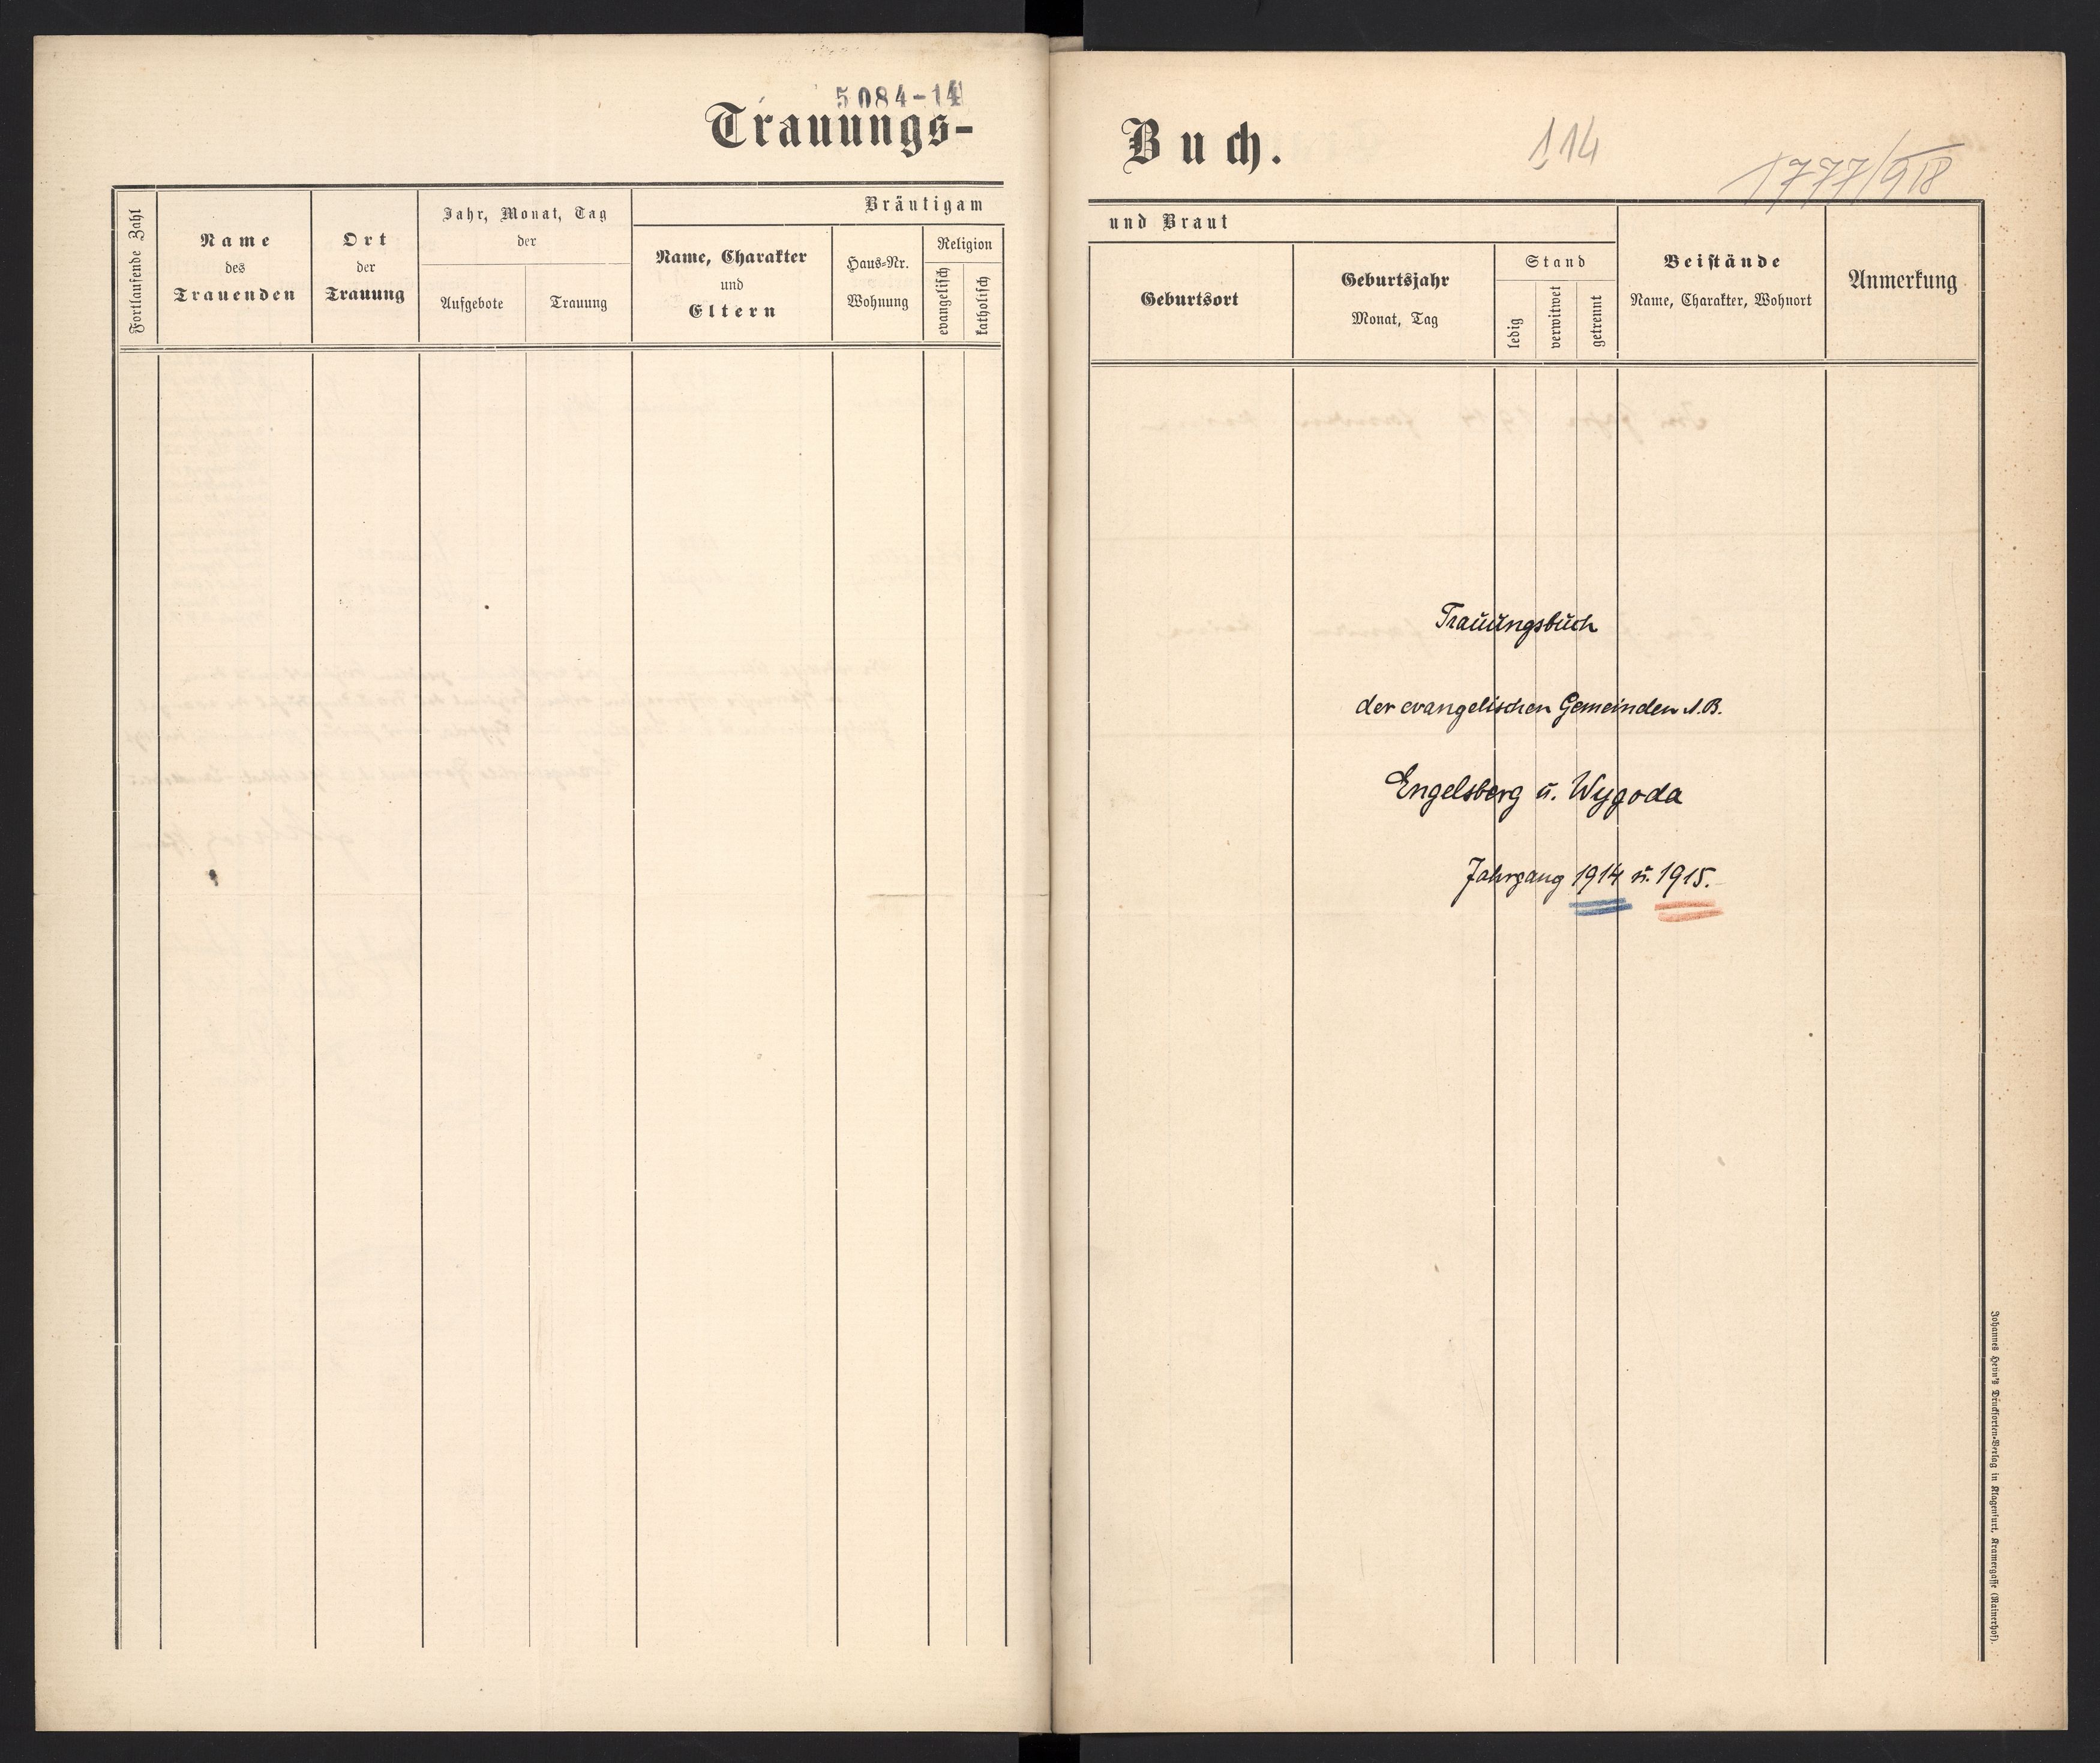 5084-14
Trauungs-
Fortlaufende Zahl
Name
des
Trauenden
Ort
der
Trauung
Jahr, Monat, Tag
der
Aufgebote
Trauung
Bräutigam
Name, Charakter
und
Eltern
Haus-Nr.
Wohnung
Religion
evangelisch
katholisch
Buch.
114
1777/918
und Braut
Geburtsort
Geburtsjahr
Monat, Tag
Stand
ledig
verwitwet
getrennt
Beistände
Name, Charakter, Wohnort
Anmerkung
Trauungsbuch
der evangelischen Gemeinden A.B.
Engelsberg u. Wygoda
Jahrgang 1914 u. 1915.
Johannes Heyn's Drucksorten-Verlag in Klagenfurt, Kramergasse (Rainerhof).